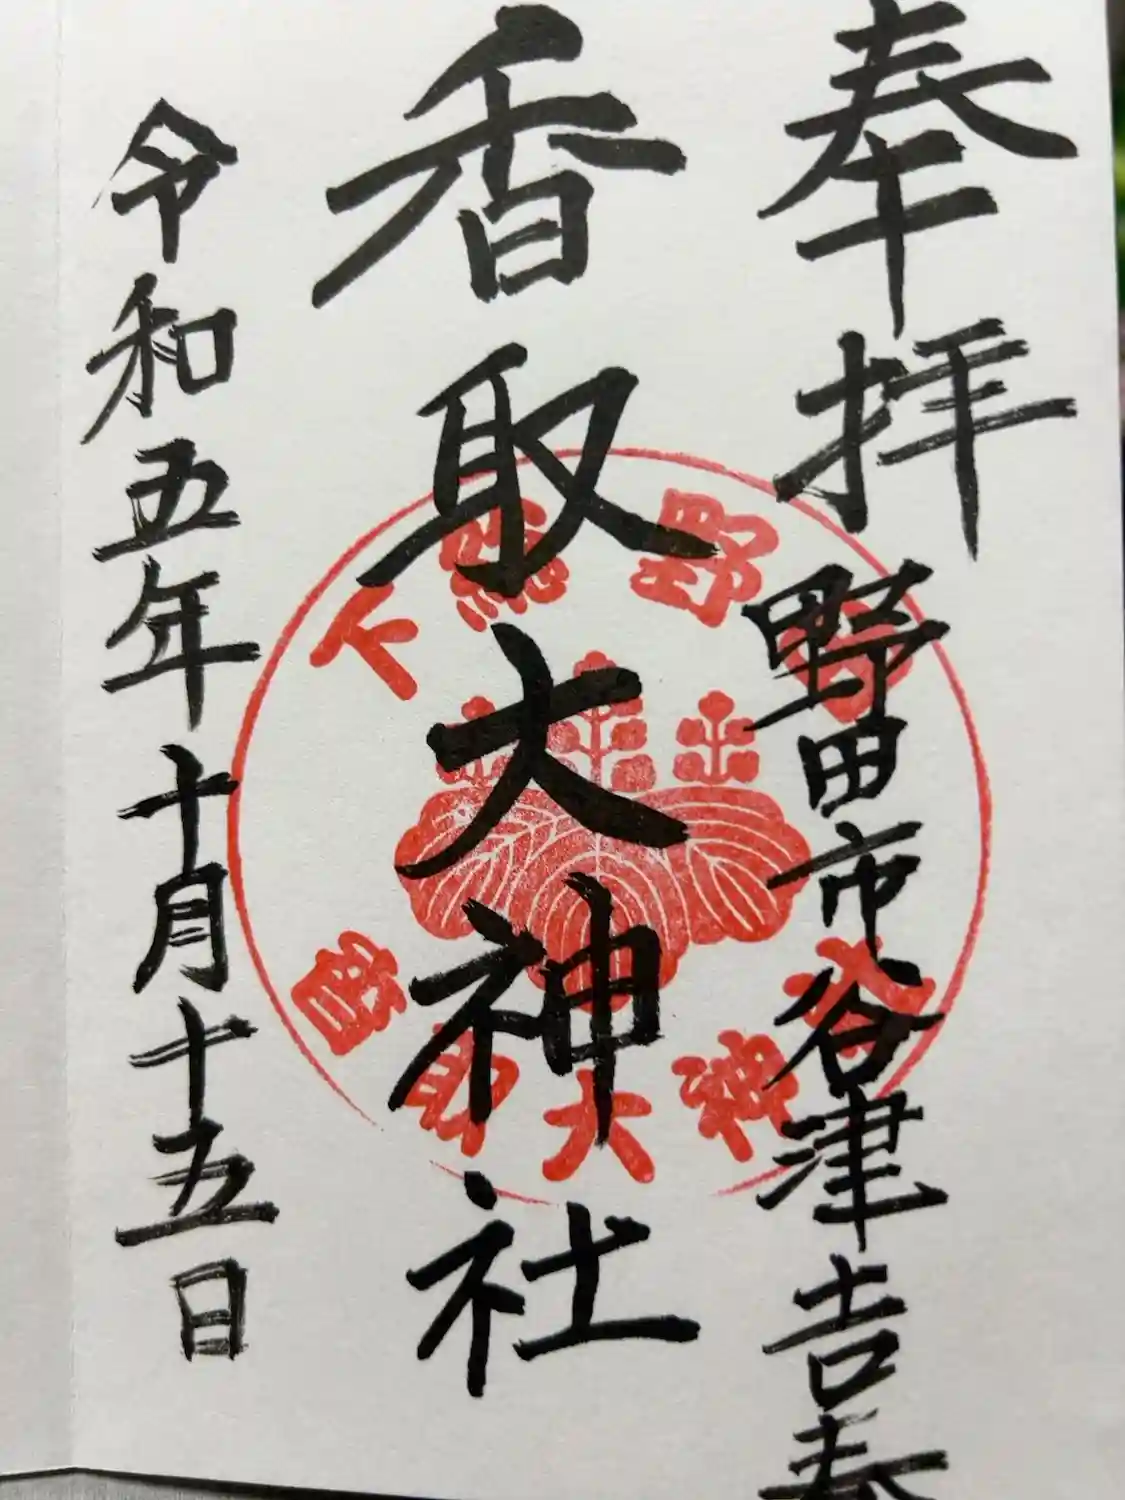 奉拝
野田市谷津吉春
香取大神社
令和五年十月十五日
下総野田
香取大神